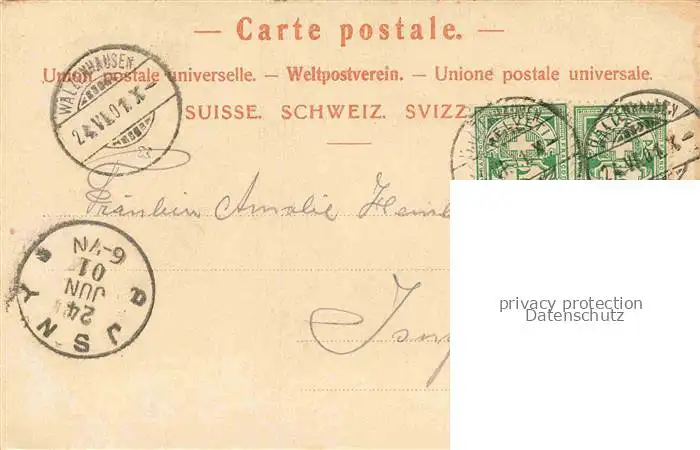 — Carte postale. —
Union postale universelle. — Weltpostverein. — Unione postale universale.
SUISSE. SCHWEIZ. SVIZZ
WALZENHAUSEN
24.VI.01.X–
WALZENHAUSEN
24.VI.01.X–
Fräulein Amalie
privacy protection
Datenschutz
6-7N
01
JUN
24